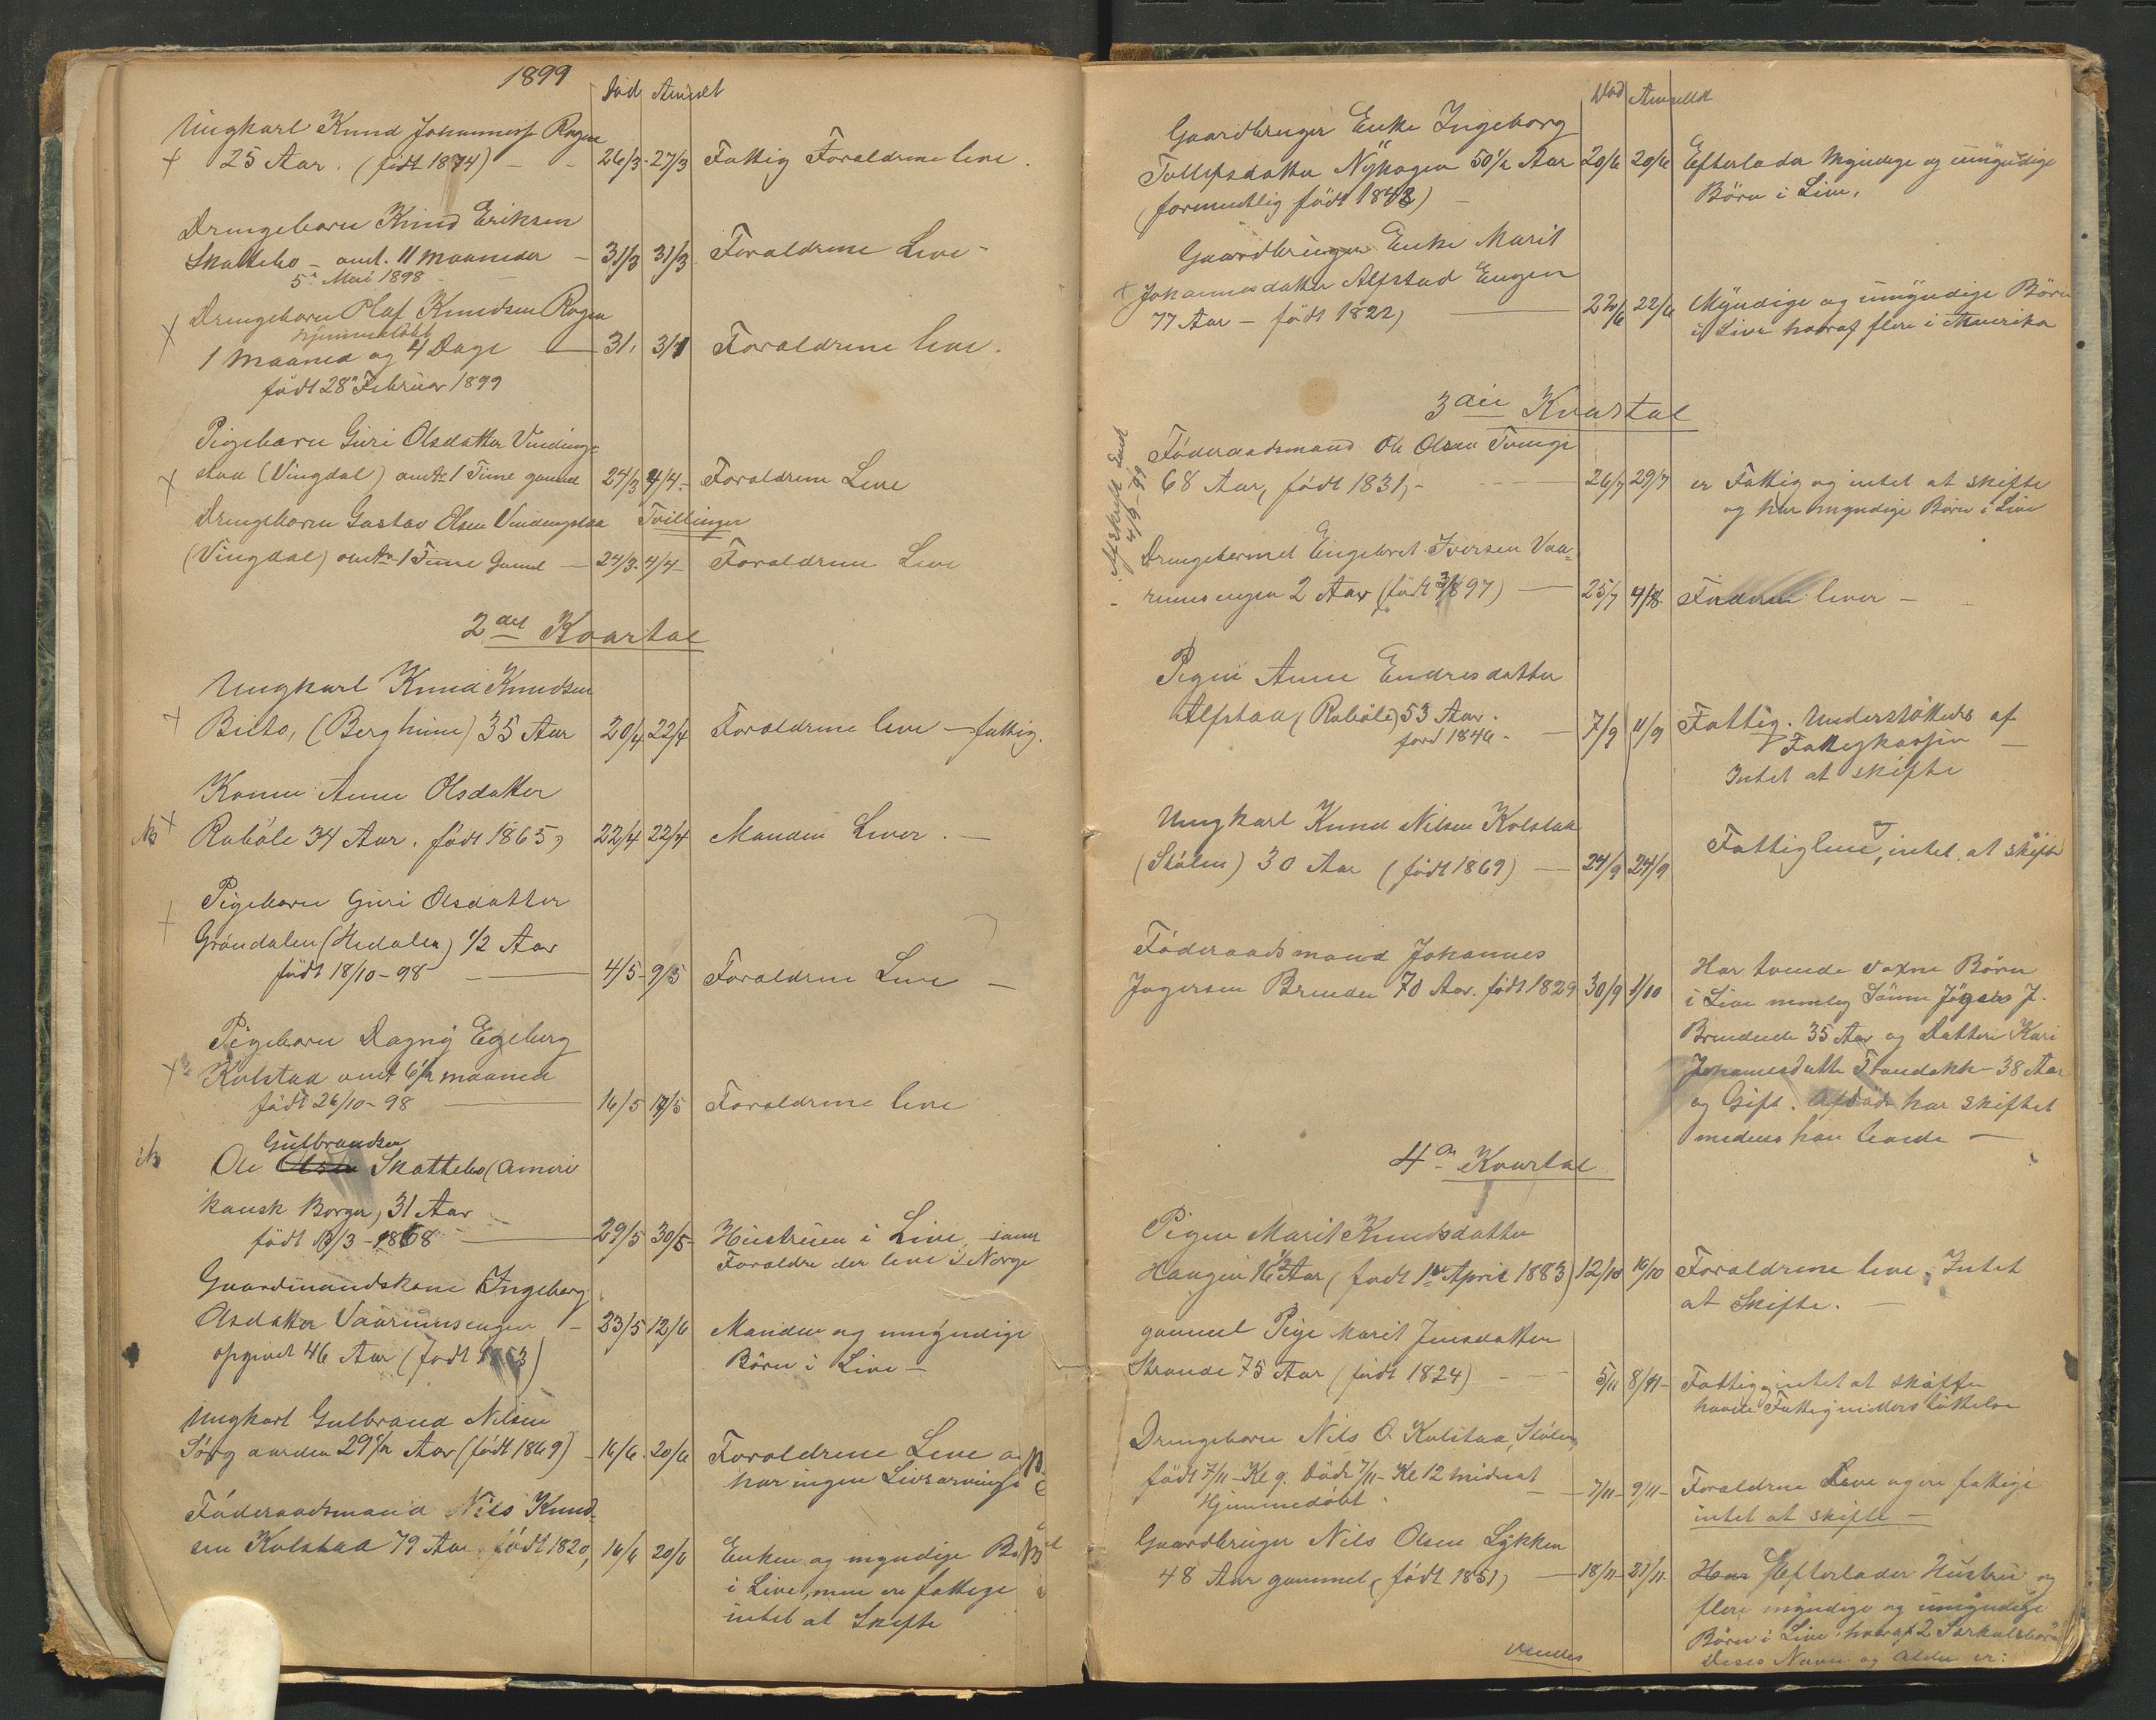 1899
Død Anmeldt
Ungkarl Knud Johannes Rogne
+ 25 Aar. (født 1874) - - 26/3 - 27/3 Fattig Forældrene leve.
Drengebarn Knud Eriksen
Skattebo - omt. 11 maaneder - 31/3 31/3 Forældrene Leve -
5te Mai 1898 -
Drengebarn Olaf Knudsen Rogne
hjemmedøbt
+ 1 Maaned og 4 Dage — 31/ 3/4 Forældrene leve.
født 28de Februar 1899
Pigebarn Guri Olsdatter Vinding-
+ stad (Vingdal) omtr 1 Time gammel 24/3 4/4 - Forældrene Leve
Drengebarn Gustav Olsen Vindingstaa Tvillinger
(Vingdal) omtr 1 Time Gammel — 24/3. 4/4 - Forældrene Leve
2det Kvartal
Ungkarl Knud Knudsen
+ Bitto, (Berghime) 35 Aar 20/4 22/4 Forældrene leve - fattig.
Konen Anne Olsdatter
+ Robøle 34 Aar. født 1865, 22/4 22/4 Manden Lever. —
Pigebarn Guri Olsdatter
+ Grøndalen (Hedalen) 1/2 Aar
født 18/10 - 98 — 4/5 - 9/5 Forældrene Leve —
Pigebarn Dagny Egeberg
+ Kolstad omt 6 1/2 maaned
født 26/10 - 98 — 16/5 17/5 Forældrene leve
Gulbrandsen
Ole Olsen Skattebo (Ameri
kansk Borger) 31 Aar
født 13/3 - 1868 — 29/5 30/5 - Hustruen i Live, samt
Forældre der leve i Norge
Gaardmandskone Ingeborg
Olsdatter Vaarumsengen - 23/5 12/6 Manden og umyndige
opgivet 46 Aar (født 1853) Børn i Live —
Ungkarl Gulbrand Nilsen
Sørgaarden 29 1/2 Aar (født 1869) - 16/6. 20/6 Forældrene Leve og
har ingen Livsarvinge
Føderaadsmand Nils Knud-
sen Kolstad 79 Aar født 1820, 16/6 20/6 Enken og myndige
i Live, men er fattige
intet at Skifte
Død Anmeldt
Gaardbruger Enke Ingeborg
Tollefsdatter Nyhagen 50 1/2 Aar 20/6 20/6 Efterlader myndige og umyndige
(formentlig født 1848) - Børn i Live.
Gaardbruger Enke Marit
+ Johannesdatter Alfstad Engen
77 Aar - født 1822, — 22/6 22/6 Myndige og umyndige Børn
i Live hvoraf flere i Amerika
3die Kvartal
Afskrift Sendt
4/9 - 99
Føderaadsmand Ole Olsen Tvenge
68 Aar, født 1831, - 26/7 29/7 er Fattig og intet at skifte
og har myndige Børn i Live
Drengebarnet Engebret Iversen Vaa-
rumsengen 2 Aar (født 3/8 97) — 25/7 4/8. Forældrene lever -
Pigen Anne Endresdatter
Alfstad, (Robøle) 53 Aar. — 7/9 11/9 Fattig. Understøttedes af
født 1846 - Fattigkassen —
Intet at skifte
Ungkarl Knud Nilsen Kolstad
(Stølen) 30 Aar (født 1869) — 24/9 24/9 Fattiglem, intet at skifte
Føderaadsmand Johannes
Jøgersen Brenden 70 Aar. født 1829 30/9 1/10
Har tvende voxne Børn
i Live nemlig Sønnen Jøger J.
Brendende 35 Aar og Datter Kari
Johannesdatter 38 Aar
og Gift. Afdøde har skiftet
medens han levede —
4de Kvartal
Pigen Marit Knudsdatter
Haugen 16 1/2 Aar, (født 1ste April 1883) 12/10 16/10 Forældrene leve. Intet
at Skifte. —
gammel Pige Marit Jensdatter
Strande 75 Aar (født 1824) - - 5/11 8/11 - Fattig og intet at skaffe
havde Fattigunderstøttelse
Drengebarn Nils O. Kolstaa, Stølen,
født 7/11 - Kl 9. Døde 7/11 - Kl 12 midnat — 7/11 - 9/11 - Forældrene Leve og er fattige
Hjemmedøbt. intet at skifte —
Gaardbruger Nils Olsen Lykken
48 Aar gammel, (født 1851) — 18/11 - 21/11. Han Efterlader Hustru og
flere myndige og umyndige
Børn i Live, hvoraf 2 Særkulsbørn
Deres Navne og Alder er:
vendes